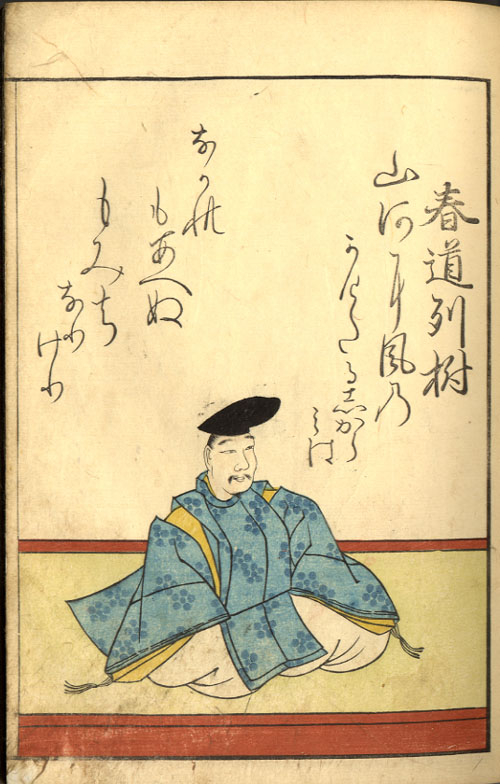 春道列樹
山河耳風乃
かけたるしから
みは
なかれ
もあへぬ
もみち
なりけり